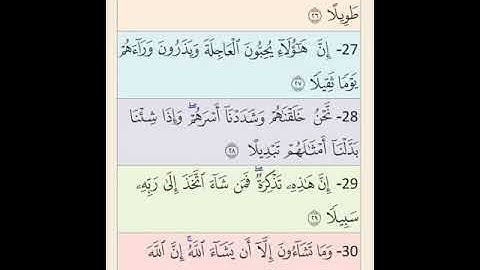 طَوِيلًا ٢٦
27- إِنَّ هَٰٓؤُلَآءِ يُحِبُّونَ ٱلْعَاجِلَةَ وَيَذَرُونَ وَرَآءَهُمْ
يَوْمًا ثَقِيلًا ٢٧
28- نَّحْنُ خَلَقْنَٰهُمْ وَشَدَدْنَآ أَسْرَهُمْ ۖ وَإِذَا شِئْنَا
بَدَّلْنَآ أَمْثَٰلَهُمْ تَبْدِيلًا ٢٨
29- إِنَّ هَٰذِهِۦ تَذْكِرَةٌ ۖ فَمَن شَآءَ ٱتَّخَذَ إِلَىٰ رَبِّهِۦ
سَبِيلًا ٢٩
30- وَمَا تَشَآءُونَ إِلَّآ أَن يَشَآءَ ٱللَّهُ ۚ إِنَّ ٱللَّهَ